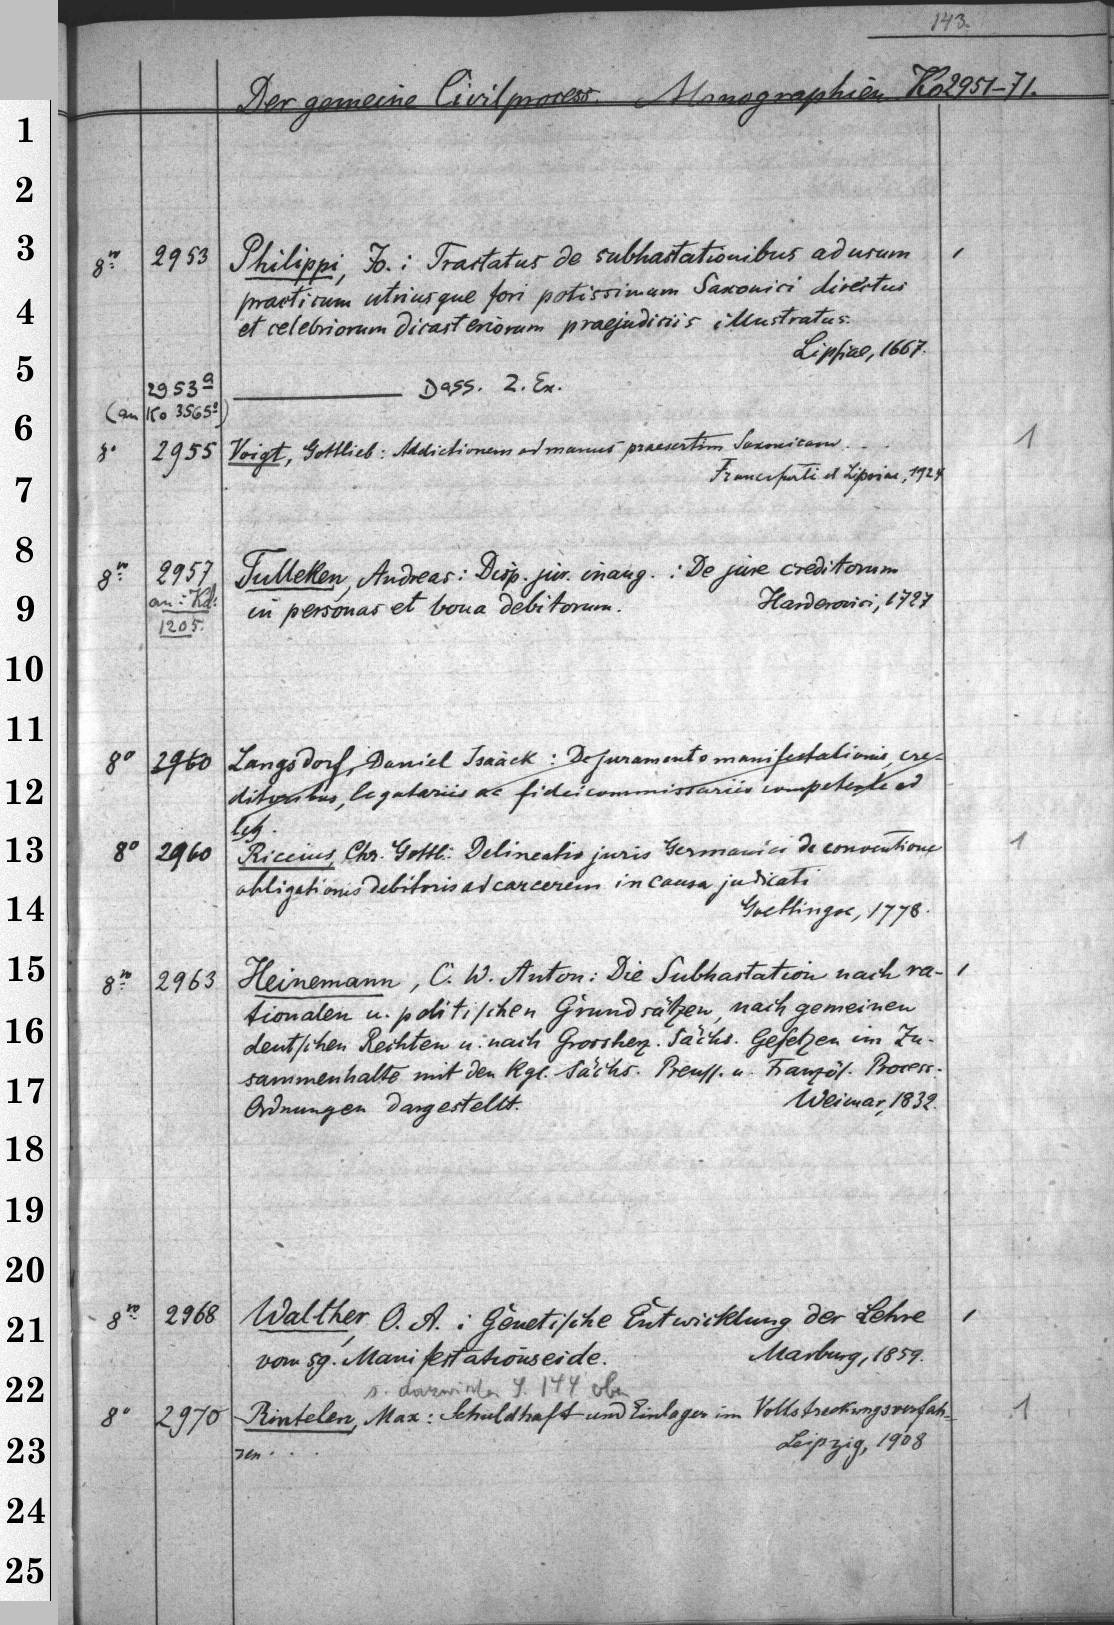 143.
Der gemeine Civilprocess. Monographien Ko2951-71.
1
2
3 8vo 2953 Philippi, Jo.: Tractatus de subhastationibus ad usum
practicum utriusque fori potissimum Saxonici directus
4 et celebriorum dicasteriorum praejudiciis illustratus.
Lipsiae, 1667.
5 2953a Dass. 2. Ex.
(an Ko 3565a)
6 8° 2955 Voigt, Gottlieb: Addictionem ad manus praesertim Saxonicam . . . 1
7 Francofurti et Lipsiae, 1724
8 8vo 2957 Tulleken, Andreas: Disp. jur. inaug.: De jure creditorum
9 an: Kd: in personas et bona debitorum. Harderovici, 1727
1205.
10
11
8° 2960 Langsdorf, Daniel Isaack: De juramento manifestationis, cre-
12 ditoribus, legatariis ac fideicommissariis competente ad
leg.
13 8° 2960 Riccius, Chr. Gottl.: Delineatio juris Germanici de conventione 1
obligationis debitoris ad carcerem in causa judicati
14 Goettingae, 1778.
15 8vo 2963 Heinemann, C. W. Anton: Die Subhastation nach ra-
16 tionalen u. politischen Grundsätzen, nach gemeinen
deutschen Rechten u. nach Grossherz. Sächs. Gesetzen im Zu-
17 sammenhalte mit den Kgl. Sächs. Preuss. u. Französ. Process-
Ordnungen dargestellt. Weimar, 1832.
18
19
20
21 8vo 2968 Walther, O. A.: Genetische Entwicklung der Lehre
vom sg. Manifestationseide. Marburg, 1859.
22 s. dazwischen S. 144 oben
8° 2970 Rintelen, Max: Schuldhaft und Einlager im Vollstreckungsverfah- 1
23 ren . . . Leipzig, 1908
24
25